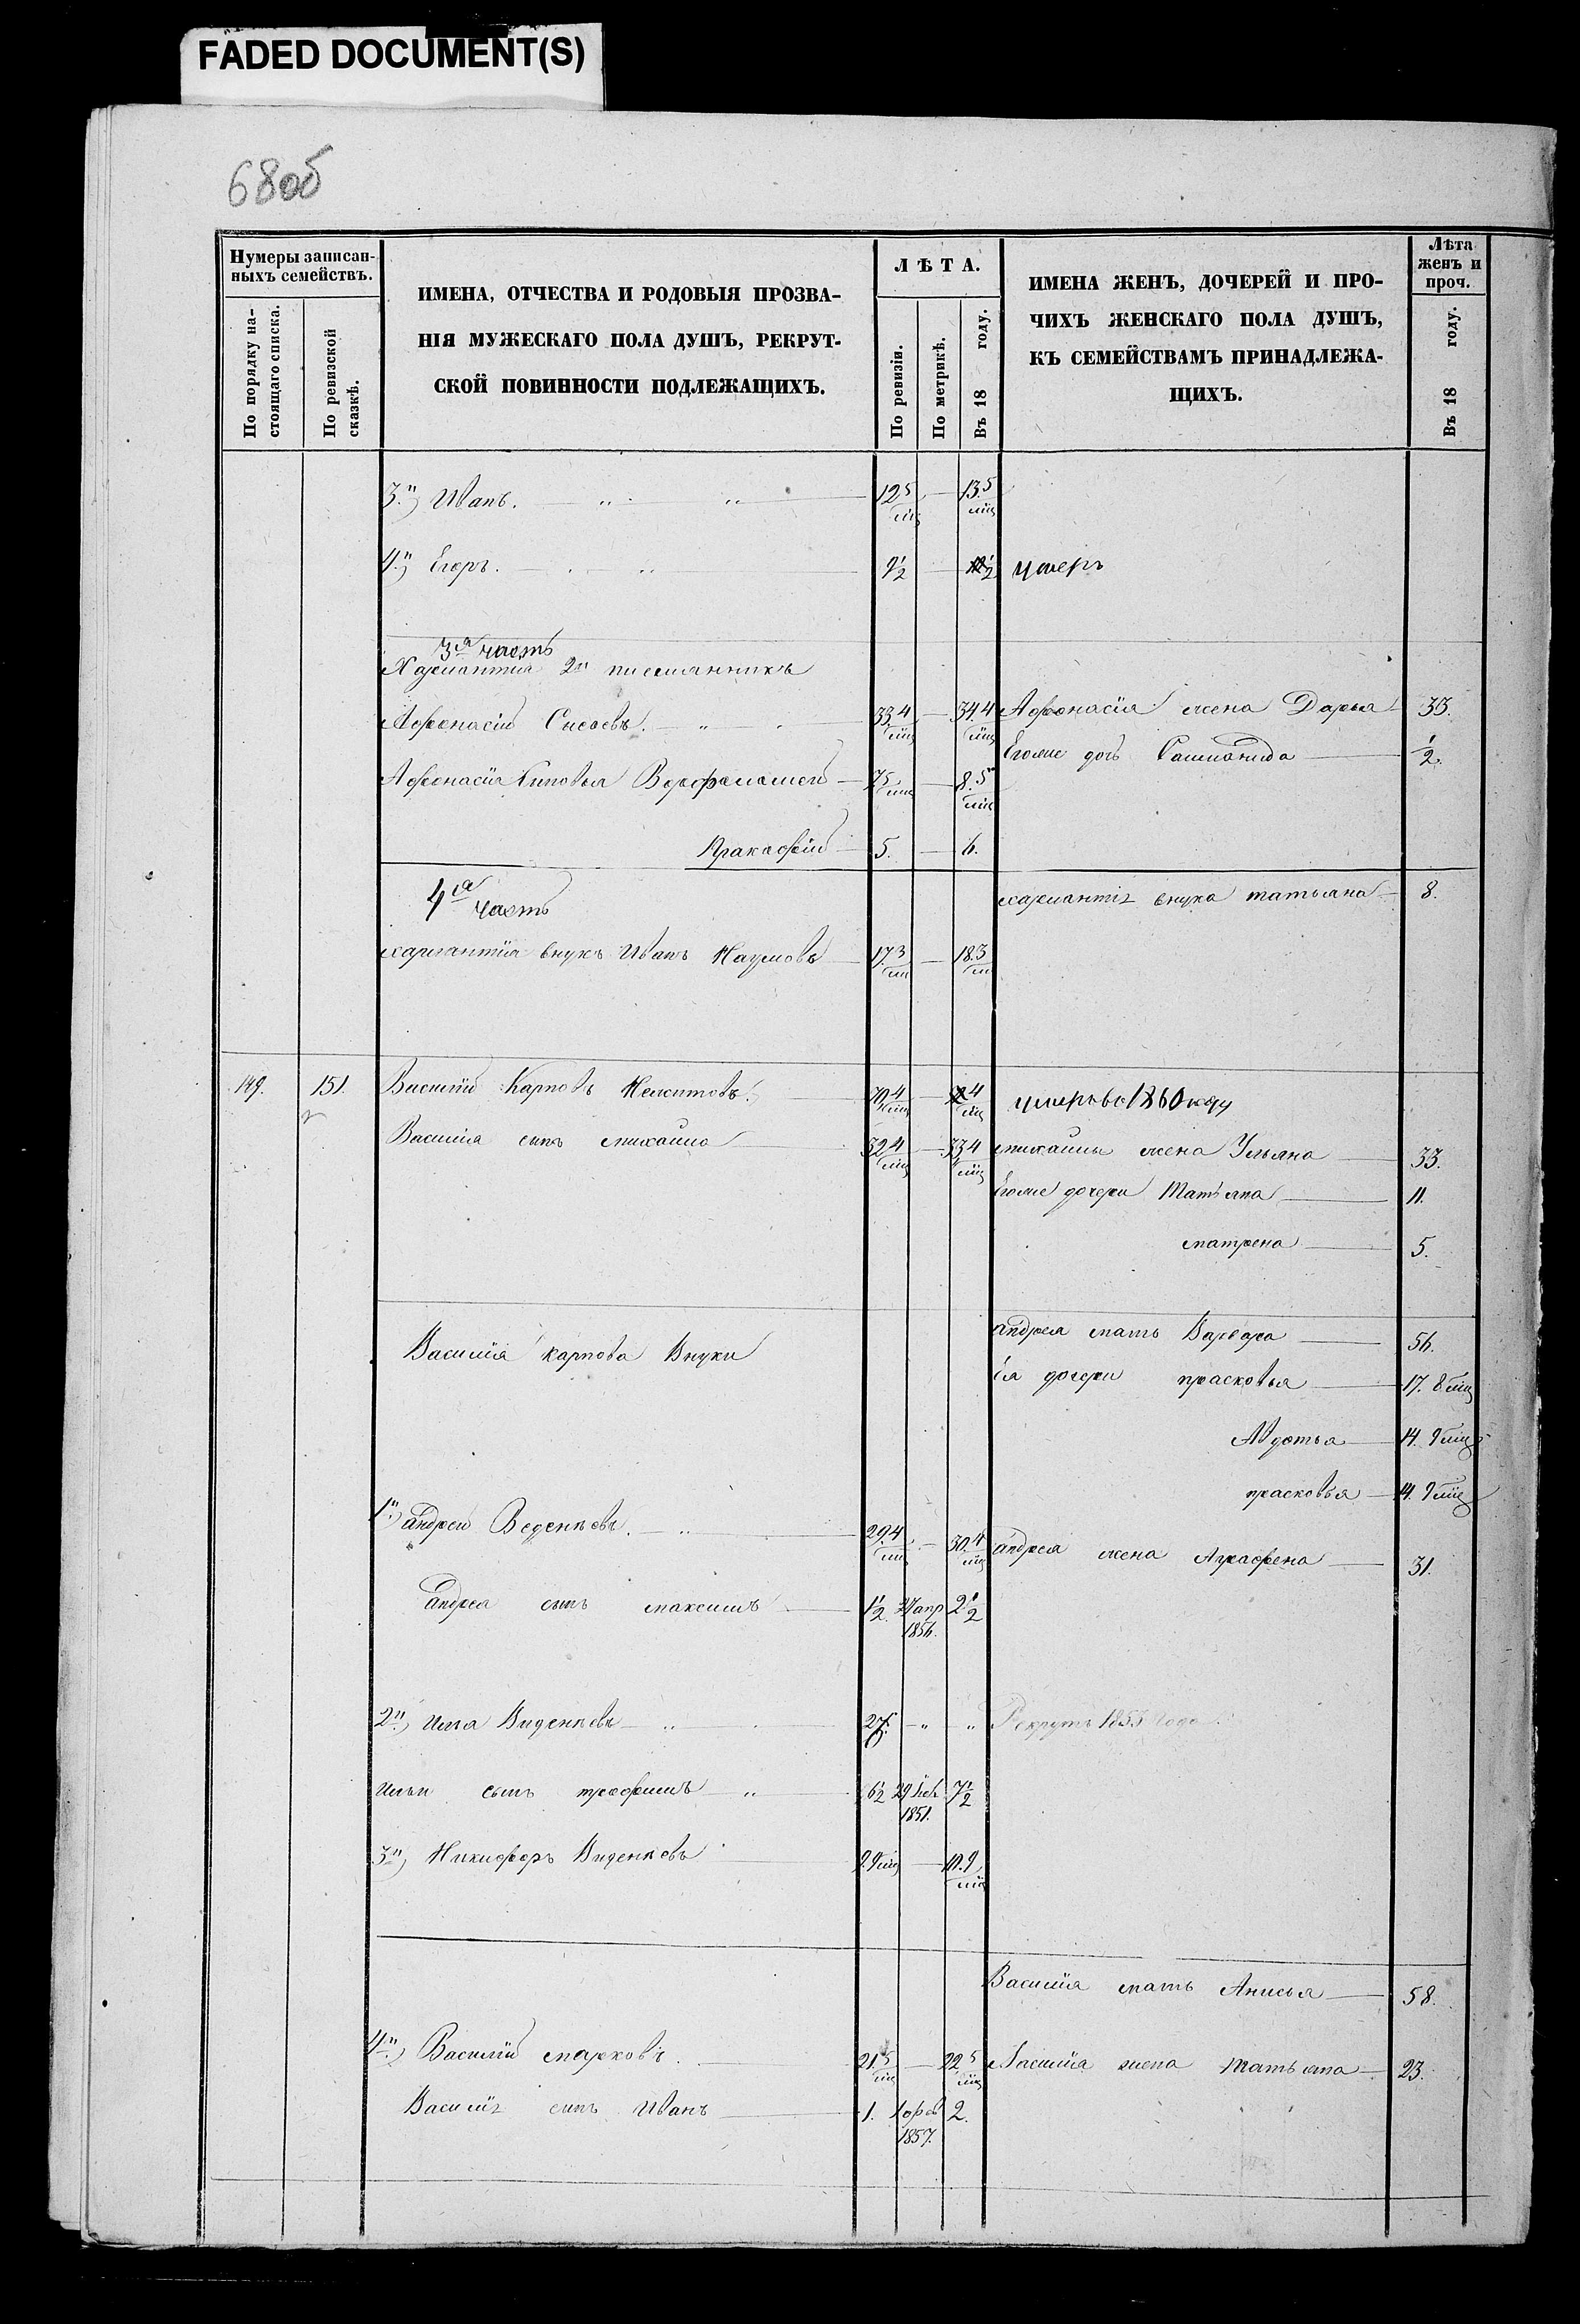 FADED DOCUMENT(S)
68об
Нумеры записан-
ныхъ семействъ.
По порядку на-
стоящаго списка.
По ревизской
сказкѣ.
ИМЕНА, ОТЧЕСТВА И РОДОВЫЯ ПРОЗВА-
НІЯ МУЖЕСКАГО ПОЛА ДУШЪ, РЕКРУТ-
СКОЙ ПОВИННОСТИ ПОДЛЕЖАЩИХЪ.
ЛѢТА.
По ревизіи.
По метрикѣ.
Въ 18 году.
ИМЕНА ЖЕНЪ, ДОЧЕРЕЙ И ПРО-
ЧИХЪ ЖЕНСКАГО ПОЛА ДУШЪ,
КЪ СЕМЕЙСТВАМЪ ПРИНАДЛЕЖА-
ЩИХЪ.
Лѣта
женъ и
проч.
Въ 18 году.
3й) Иванъ. 12 5 мц 13. 5 мц
4й) Егоръ. 9 1/2 1/2 умеръ
3я часть
2й племянникъ
Афонасій 33 4 мц 34. 4 мц Афонасія жена Дарья 33.
Егоже дочь 1/2.
Афонасія сыновья Ворфоломей 7 5 мц 8. 5 мц
Пракофій 5. 6.
4я часть
внука татьяна 8.
внукъ Иванъ Наумовъ 17. 3 м 18. 3 м
149. 151. Василій Карповъ 70. 4 мц 4 мц умеръ во 1860 году
Василія сынъ михайла 32 4 мц 33 4 мц михайлы жена Ульяна 33.
Егоже дочери Татьяна 11.
матрена 5.
Василія карпова Внуки андрея мать Варвара 56.
ея дочери прасковья 17. 8 мц
Авдотья 14. 9 мц
прасковья 14. 9 мц
1й) андрей Веденѣевъ. 29. 4 мц 30. 4 мц андрея жена Аграфена 31.
андрея сынъ максимъ 1 1/2. апр 1856. 2 1/2
2й) Илья Виденѣевъ 27. Рекрутъ 1853 года
Ильи сынъ трофимъ 6 1/2 29 1851. 7 1/2
3й) Никифоръ Виденѣевъ 9. 9 мц 10. 9 мц
Василія мать Анисья 58.
4й) Василій марковъ. 21. 5 мц 22 5 мц Василія жена татьяна 23.
Василія сынъ Иванъ 1. 1 фев 1857. 2.